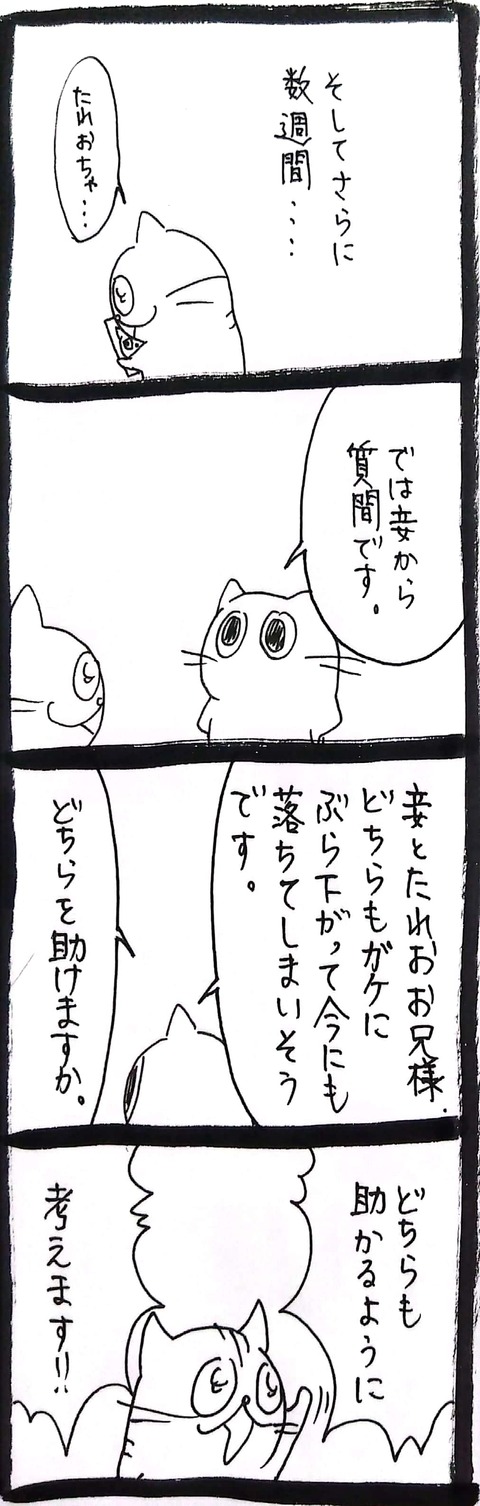 そしてさらに
数週間・・・・
たれおちゃ・・・
では妾から
質問です。
妾とたれおお兄様
どちらもガケに
ぶら下がって今にも
落ちてしまいそう
です。
どちらを助けますか。
どちらも
助かるように
考えます!!